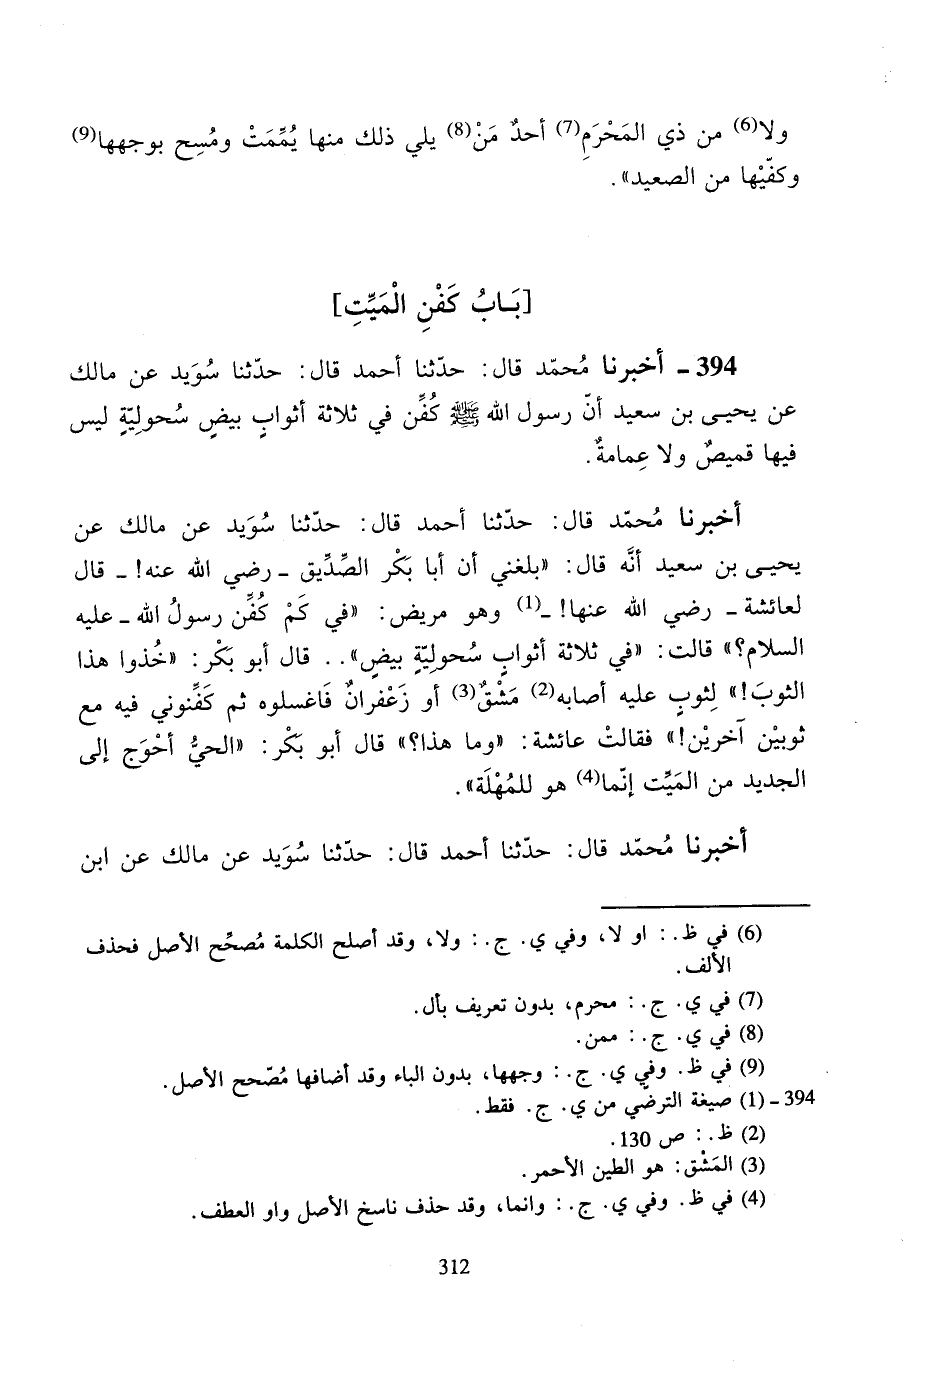 ولا(6) من ذي المَحْرَمِ(7) أحدٌ مَنْ(8) يلي ذلك منها يُمِّمَتْ ومُسِح بوجهها(9)
وكفّيْها من الصعيد».
[بَـابُ كَفْنِ الْمَيِّتِ]
394 ـ أخبرنا مُحمّد قال: حدّثنا أحمد قال: حدّثنا سُوَيد عن مالك
عن يحيـى بن سعيد أنّ رسول الله ﷺ كُفِّن في ثلاثة أثوابٍ بيضٍ سُحوليّةٍ ليس
فيها قميصٌ ولا عِمامةٌ.
أخبرنا مُحمّد قال: حدّثنا أحمد قال: حدّثنا سُوَيد عن مالك عن
يحيـى بن سعيد أنَّه قال: «بلغني أن أبا بَكْر الصِّدِّيق ـ رضي الله عنه! ـ قال
لعائشة ـ رضي الله عنها! ـ(1) وهو مريض: «في كَمْ كُفِّن رسولُ الله ـ عليه
السلام؟» قالت: «في ثلاثة أثوابٍ سُحوليّةٍ بيضٍ».. قال أبو بَكْر: «خُذوا هذا
الثوبَ!» لِثوبٍ عليه أصابه(2) مَشْقٌ(3) أو زَعْفرانٌ فَاغسلوه ثم كَفِّنوني فيه مع
ثوبيْن آخريْن!» فقالتْ عائشة: «وما هذا؟» قال أبو بَكْر: «الحيُّ أحْوَج إلى
الجديد من المَيِّت إنّما(4) هو للمُهْلَة».
أخبرنا مُحمّد قال: حدّثنا أحمد قال: حدّثنا سُوَيد عن مالك عن ابن
(6) في ظ.: او لا، وفي ي. ج.: ولا، وقد أصلح الكلمة مُصحِّح الأصل فحذف
الألف.
(7) في ي. ج.: محرم، بدون تعريف بأل.
(8) في ي. ج.: ممن.
(9) في ظ. وفي ي. ج.: وجهها، بدون الباء وقد أضافها مُصّحح الأصل.
394 ـ (1) صيغة الترضّي من ي. ج. فقط.
(2) ظ.: ص 130.
(3) المَشْق: هو الطين الأحمر.
(4) في ظ. وفي ي. ج.: وانما، وقد حذف ناسخ الأصل واو العطف.
312